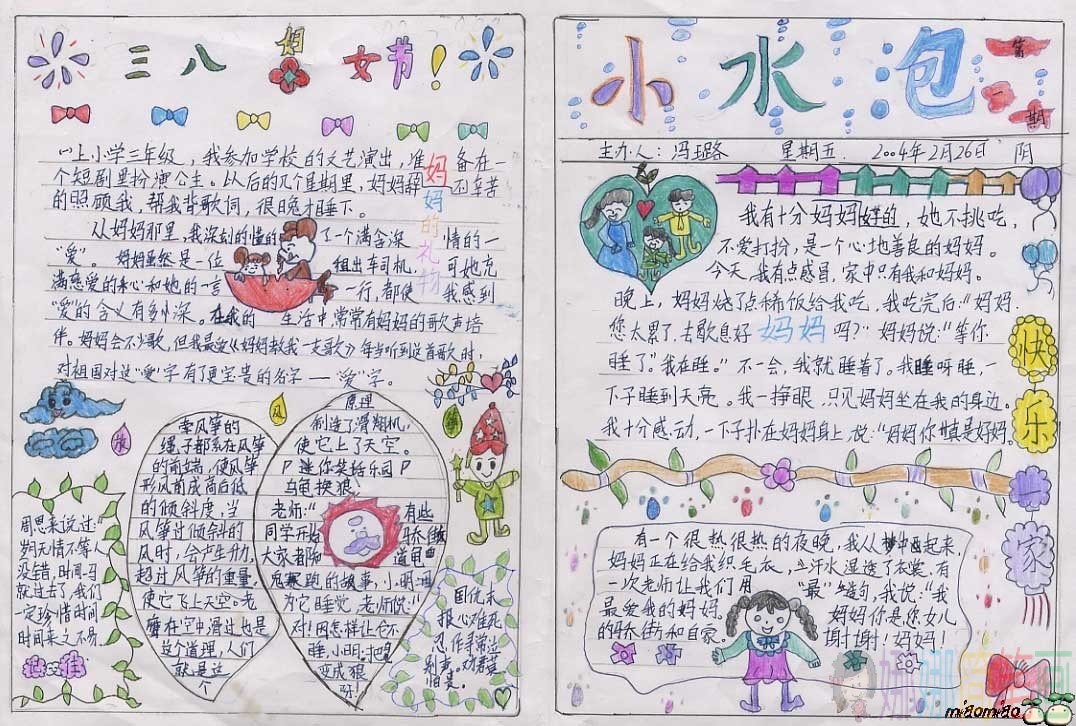 三八妇女节！
上小学三年级，我参加学校的文艺演出，准备在一
个短剧里扮演公主。以后的几个星期里，妈妈
的照顾我，帮我背歌词，很晚才睡下。
妈妈的礼物
从妈妈那里，我深刻的懂的了一个满含深情的一
“爱”。妈妈虽然是一位出租车司机，可她充
满慈爱的心和她的一言一行，都使我感到
“爱”的含义有多么深。在我的生活中，常常有妈妈的歌声培
伴。妈妈会不少歌，但我最爱《妈妈教我一支歌》每当听到这首歌时，
对祖国对这“爱”字有了更宝贵的名字一“爱”字。
牵风筝的
绳子都系在风筝
的前端，使风筝
形成前高后低
的倾斜度，当
风筝过倾斜的
风时，会产生升力，
超过风筝的重量，
使它飞上天空。老
鹰在空中滑过也是
这个道理，人们
就是这
个
原理
制造了滑翔机，
使它上了天空。
迷你笑话乐园
乌龟换狼
老师：“有些
同学开始骄傲
大家都知道龟
兔赛跑的故事，小明
为它睡觉，老师说：“
对！因怎样让它不
睡，小明：把龟
变成狼
呀！
周恩来说过：“
岁月无情不等人
没错，时间一马
就过去了，我们
一定珍惜时间
时间来之不易
小水泡
第一期
主办人：冯璐路 星期五 2004年2月26日 阴
我有十分妈妈好的，她不挑吃，
不爱打扮，是一个心地善良的妈妈。
今天，我有点感冒，家中只有我和妈妈，
晚上，妈妈烧了点稀饭给我吃，我吃完后：“妈妈
您太累了，去歇息好吗？”妈妈说：“等你
妈妈
睡了。”我在睡。”不一会，我就睡着了。我睡呀睡，一
下子睡到天亮。我一挣眼，只见妈妈坐在我的身边。
我十分感动，一下子扑在妈妈身上，说：“妈妈你真是好妈妈。
快乐一家
有一个很热很热的夜晚，我从梦中西起来，
妈妈正在给我织毛衣，汗水湿透了衣裳，有
一次老师让我们用“最”造句，我说：“我
最爱我的妈妈。妈妈你是您女儿
的骄傲和自豪。谢谢！妈妈！
娜娜爱笔画
miaomiao